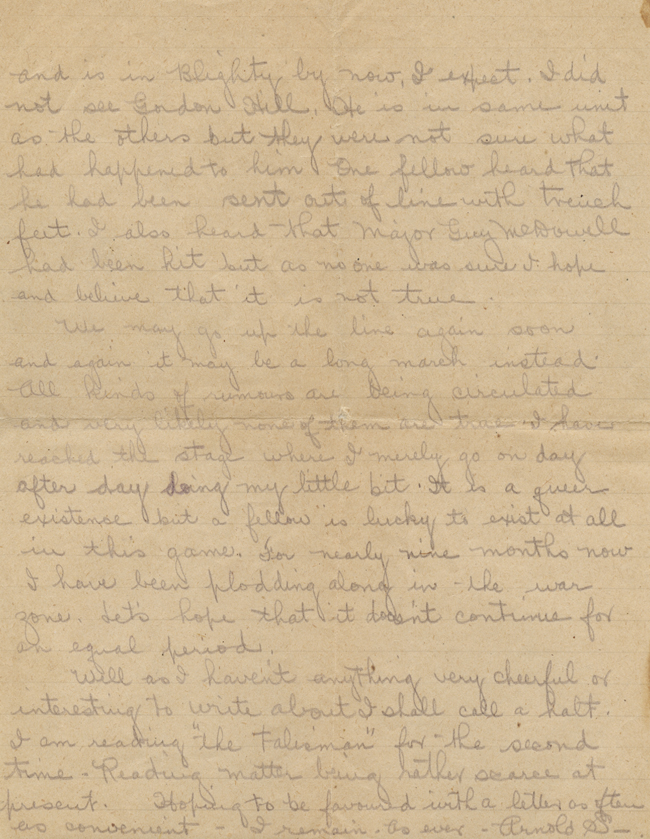 and is in Blighty by now, I expect. I did
not see Gordon Hill. He is in same unit
as the others but they were not sure what
had happened to him. One fellow heard that
he had been sent out of line with trench
feet. I also heard that Major Guy McDowell
had been hit but as no one was sure I hope
and believe that it is not true.
We may go up the line again soon
and again it may be a long march instead.
All kinds of rumours are being circulated
and very likely none of them are true. I have
reached the stage where I merely go on day
after day doing my little bit. It is a queer
existence but a fellow is lucky to exist at all
in this game. For nearly nine months now
I have been plodding along in the war
zone. Let's hope that it doesn't continue for
an equal period.
Well as I haven't anything very cheerful or
interesting to write about I shall call a halt.
I am reading "the Talisman" for the second
time - Reading matter being rather scarce at
present. Hoping to be favoured with a letter as often
as convenient - I remain as ever - Arnold